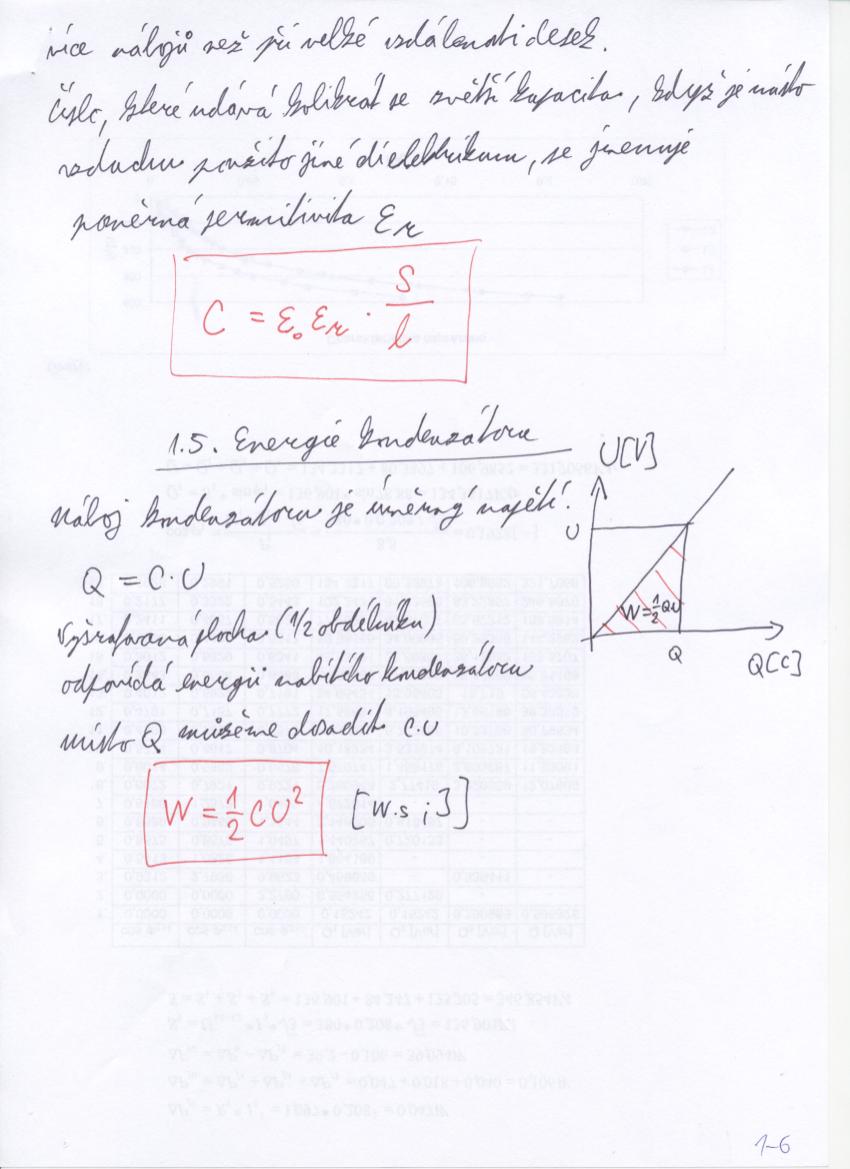 více nábojů než při velké vzdálenosti desek.
Číslo, které udává kolikrát se zvětší kapacita, když je místo
vzduchu použito jiné dielektrikum, se jmenuje
poměrná permitivita εr
C = ε₀ εr · S/l
1.5. Energie kondenzátoru
U[V]
Náboj kondenzátoru je úměrný napětí.
U
Q = C·U
W=½QU
Vyšrafovana plocha (1/2 obdélníku)
Q
Q[C]
odpovídá energii nabitého kondenzátoru
místo Q můžeme dosadit C.U
W = ½ CU² [W.s ; J]
1-6